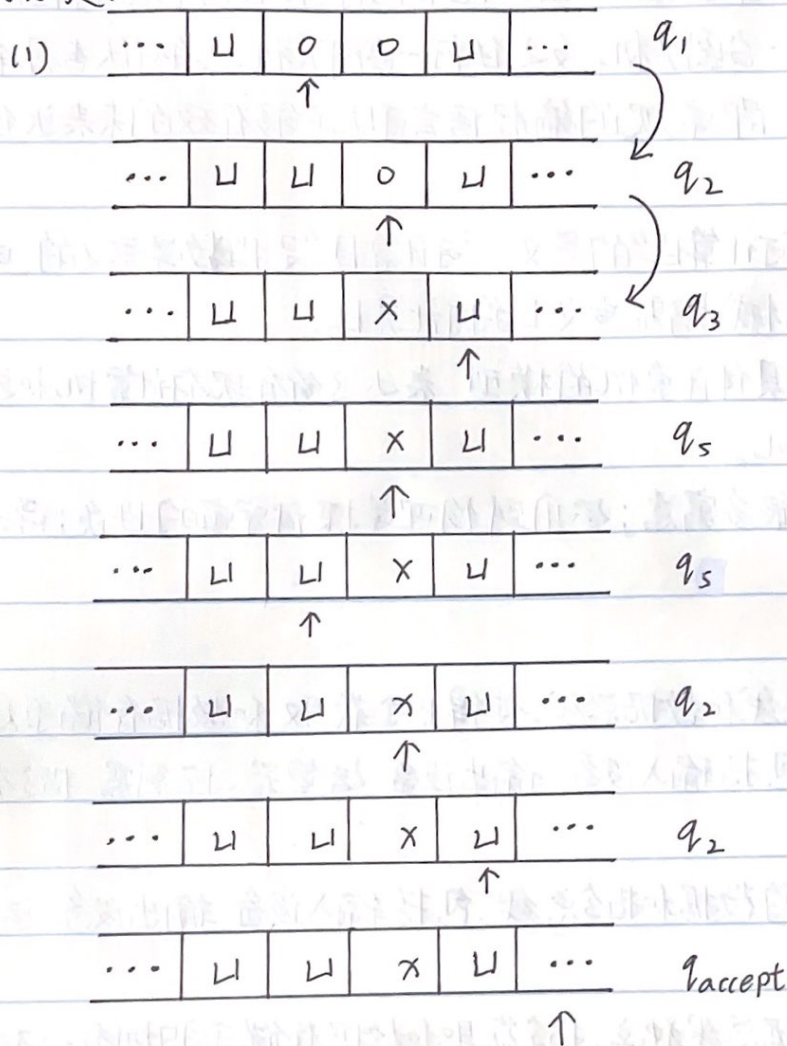 (1) ... ⊔ 0 0 ⊔ ... q1
↑
... ⊔ ⊔ 0 ⊔ ... q2
↑
... ⊔ ⊔ x ⊔ ... q3
↑
... ⊔ ⊔ x ⊔ ... q5
↑
... ⊔ ⊔ x ⊔ ... q5
↑
... ⊔ ⊔ x ⊔ ... q2
↑
... ⊔ ⊔ x ⊔ ... q2
↑
... ⊔ ⊔ x ⊔ ... qaccept
↑